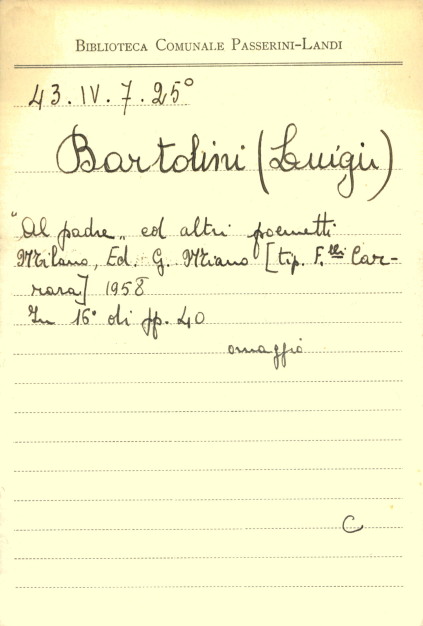 BIBLIOTECA COMUNALE PASSERINI-LANDI
43.IV.7.25°
Bartolini (Luigi)
"Al padre„ ed altri poemetti
Milano, Ed. G. Miano [tip. F.lli Car-
rara] 1958
In 16° di pp. 40
omaggio
C